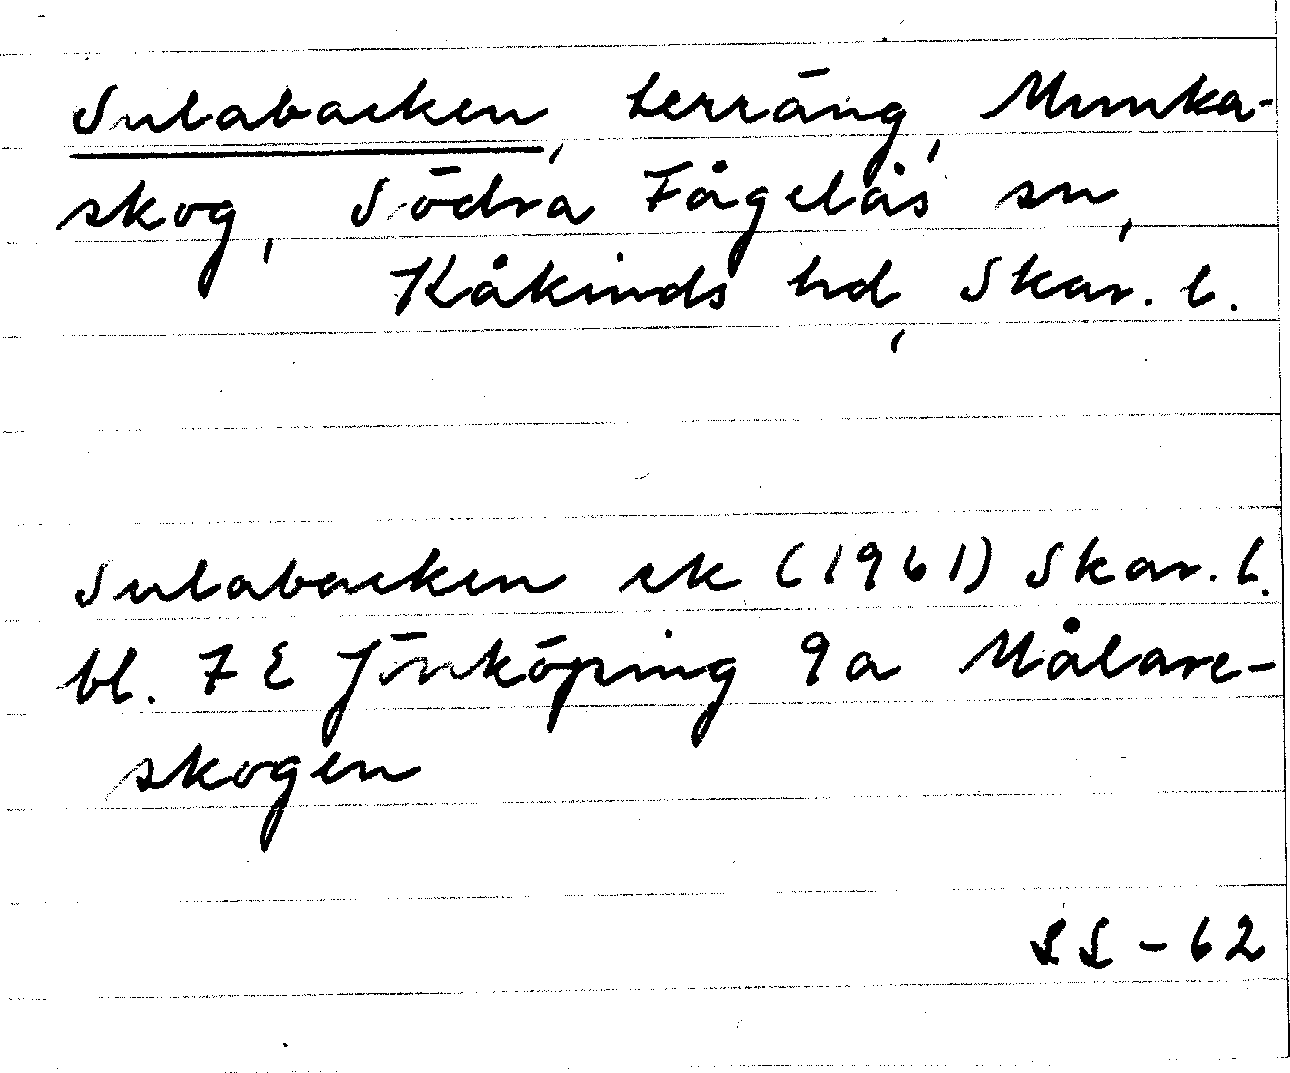 Sulabacken, terräng, Munka-
skog, Södra Fågelås sn,
Kåkinds hd, Skar. l.
Sulabacken ek (1961) Skar. l.
bl. 7 E Jönköping 9a Målare-
skogen
SL-62